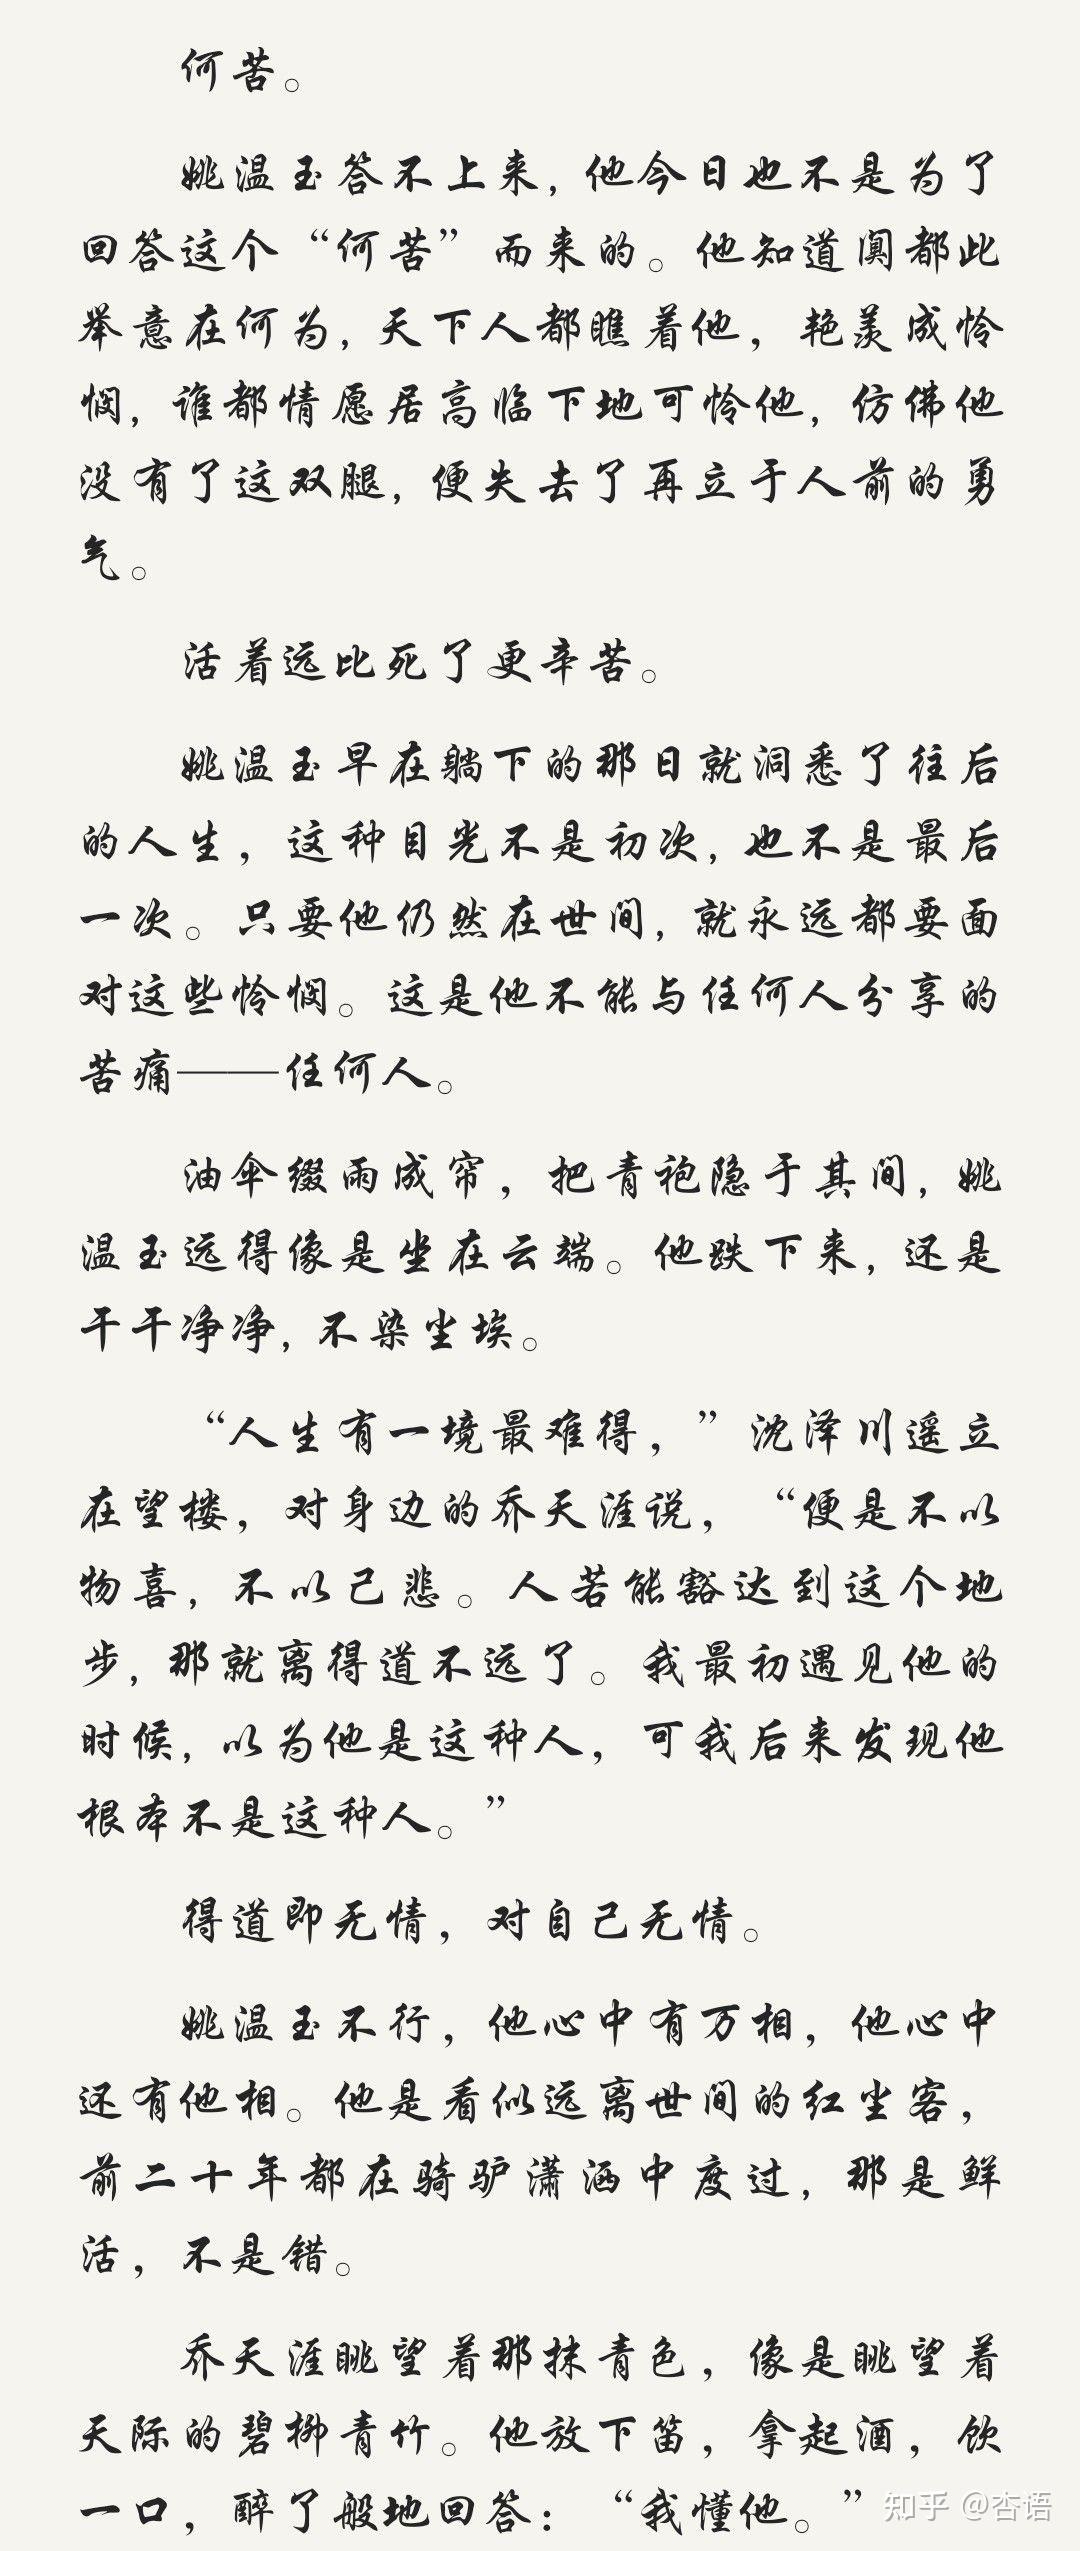 何苦。
姚温玉答不上来，他今日也不是为了
回答这个“何苦”而来的。他知道阒都此
举意在何为，天下人都瞧着他，艳羡成怜
悯，谁都情愿居高临下地可怜他，仿佛他
没有了这双腿，便失去了再立于人前的勇
气。
活着远比死了更辛苦。
姚温玉早在躺下的那日就洞悉了往后
的人生，这种目光不是初次，也不是最后
一次。只要他仍然在世间，就永远都要面
对这些怜悯。这是他不能与任何人分享的
苦痛——任何人。
油伞缀雨成帘，把青袍隐于其间，姚
温玉远得像是坐在云端。他跌下来，还是
干干净净，不染尘埃。
“人生有一境最难得，”沈泽川遥立
在望楼，对身边的乔天涯说，“便是不以
物喜，不以己悲。人若能豁达到这个地
步，那就离得道不远了。我最初遇见他的
时候，以为他是这种人，可我后来发现他
根本不是这种人。”
得道即无情，对自己无情。
姚温玉不行，他心中有万相，他心中
还有他相。他是看似远离世间的红尘客，
前二十年都在骑驴潇洒中度过，那是鲜
活，不是错。
乔天涯眺望着那抹青色，像是眺望着
天际的碧柳青竹。他放下笛，拿起酒，饮
一口，醉了般地回答：“我懂他。”
知乎 @杏语